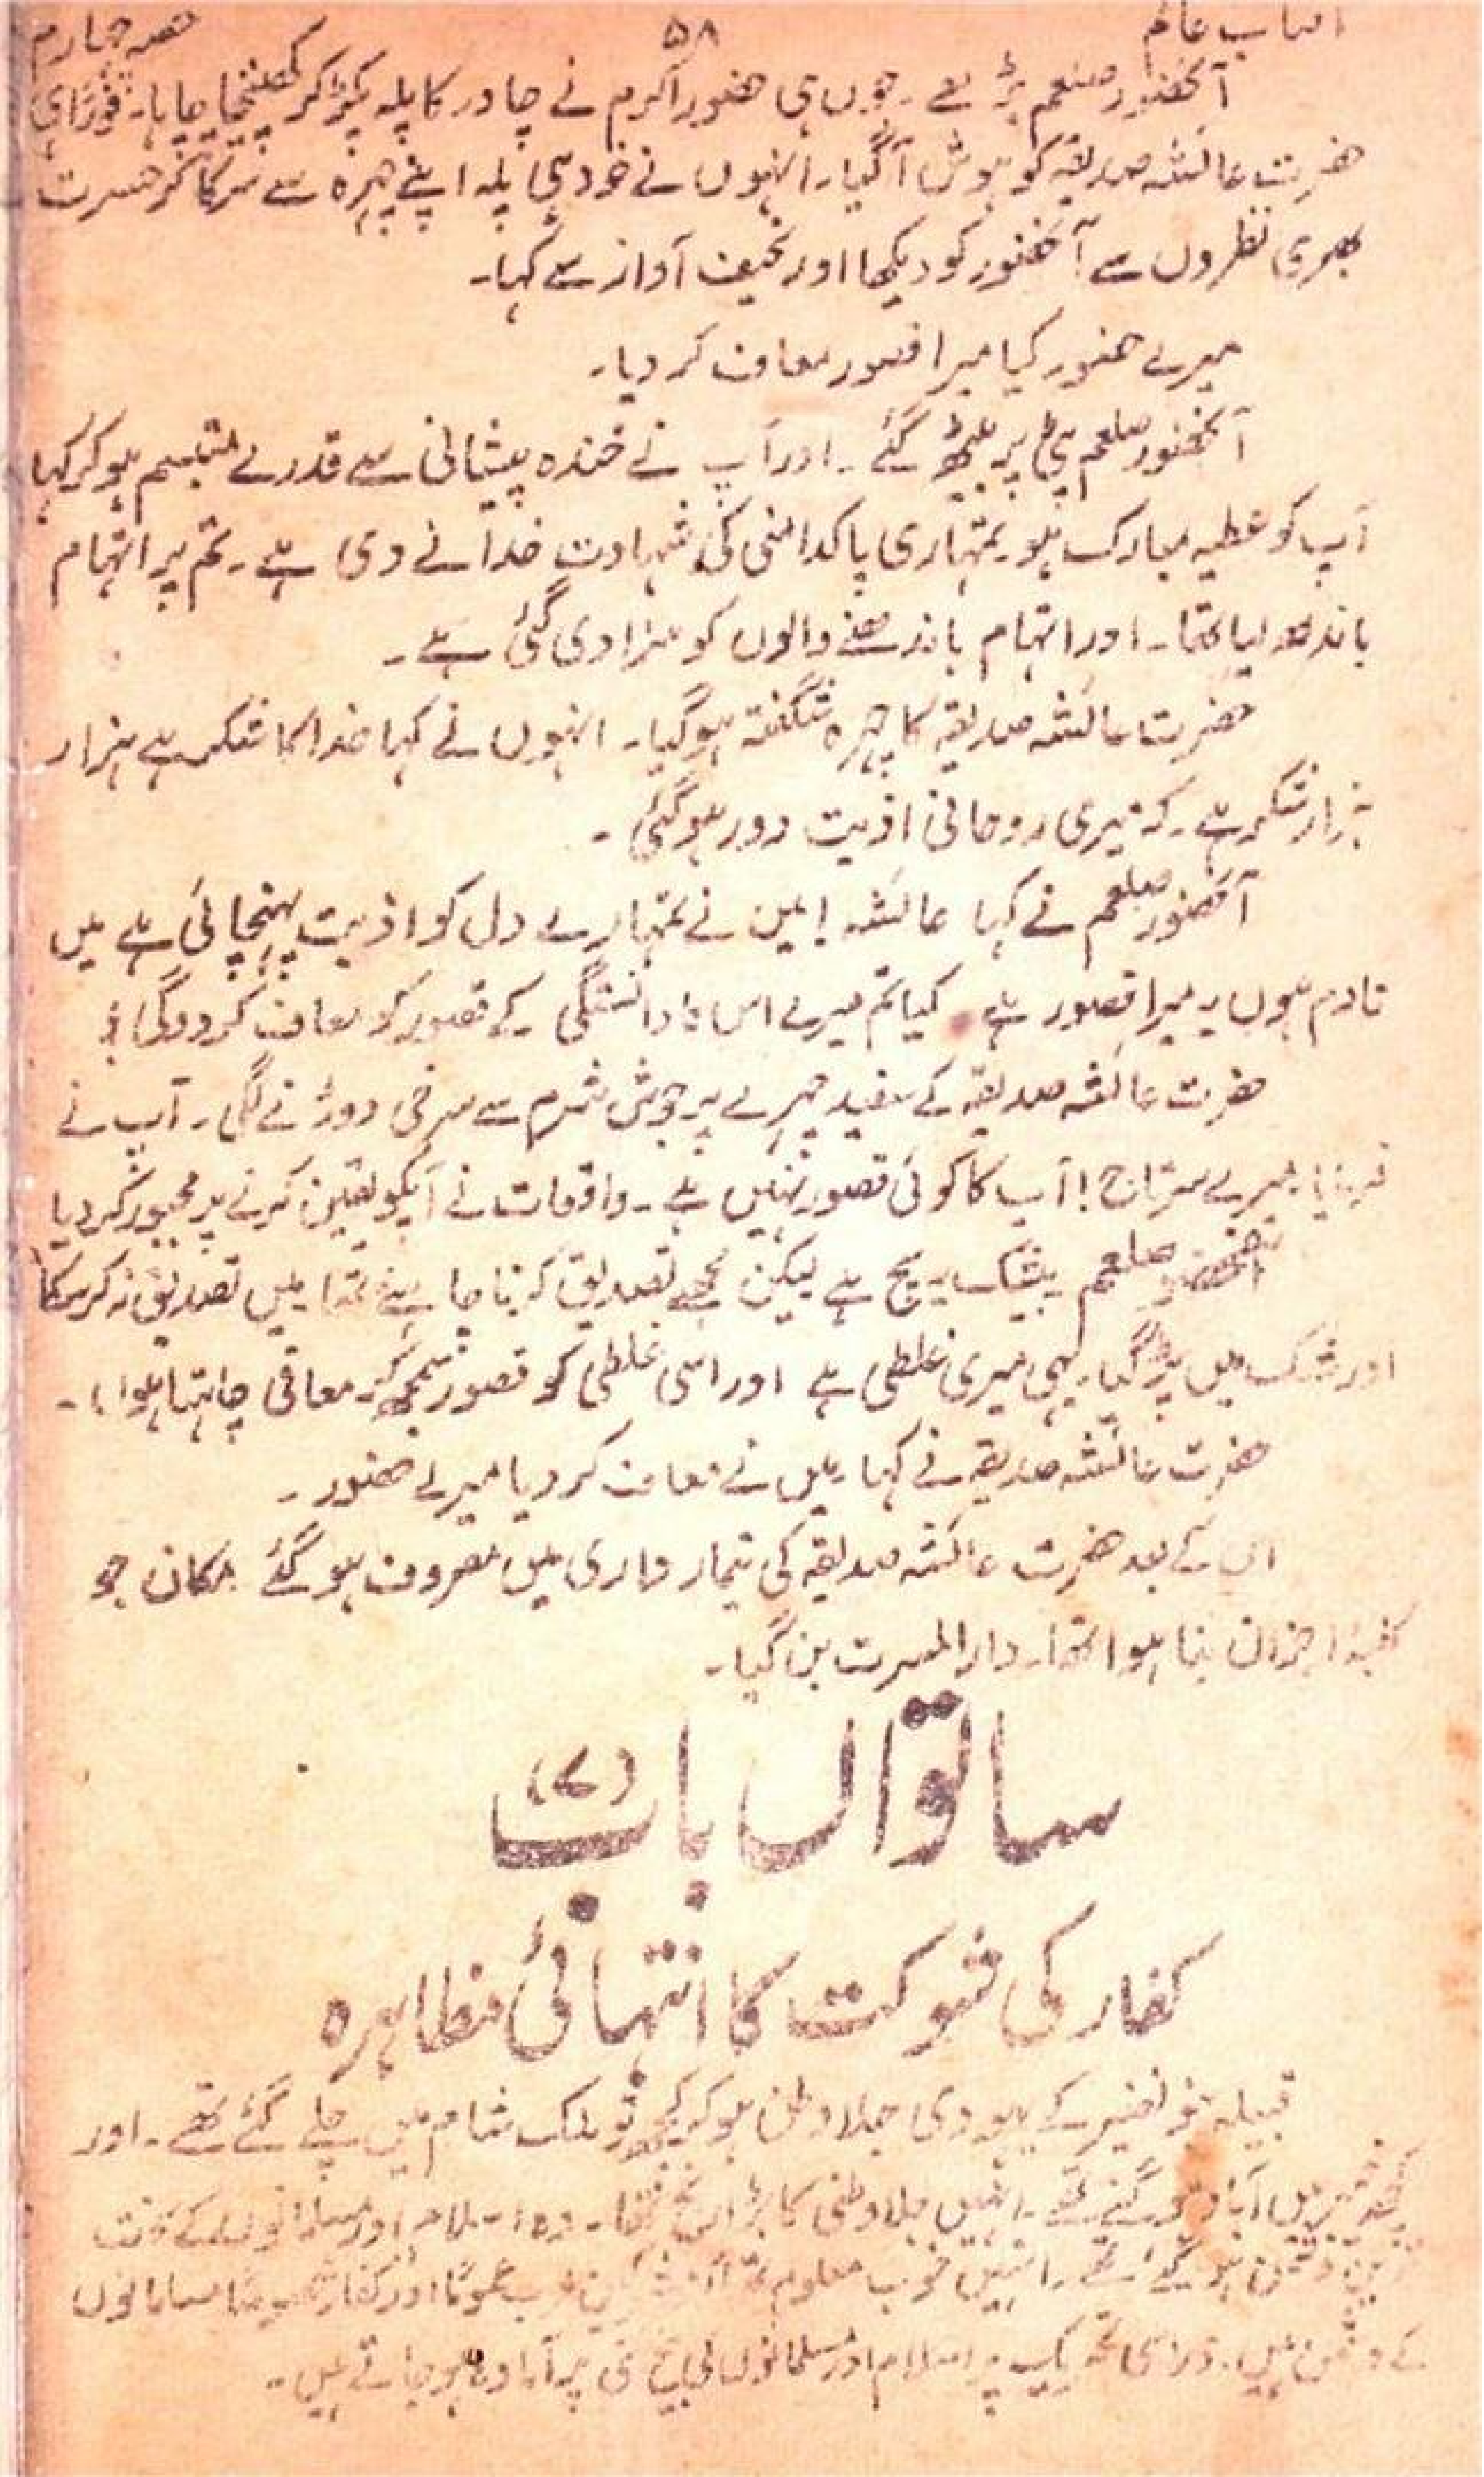 آفتاب عالم ۵۸ حصہ چہارم
آنحضور صلعم بڑھے۔ جوں ہی حضور اکرم نے چادر کا پلہ پکڑ کر کھینچنا چاہا۔ فوراً ہی
حضرت عائشہ صدیقہ کو ہوش آگیا۔ انہوں نے خود ہی پلہ اپنے چہرہ سے سرکا کر حسرت
بھری نظروں سے آنحضور کو دیکھا اور نحیف آواز سے کہا۔
میرے حضور کیا میرا قصور معاف کر دیا۔
آنحضور صلعم پٹی پر بیٹھ گئے۔ اور آپ نے خندہ پیشانی سے قدرے متبسم ہو کر کہا
آپ کو عطیہ مبارک ہو۔ تمہاری پاکدامنی کی شہادت خدا نے دی ہے۔ تم پر اتہام
باندھ لیا تھا۔ اور اتہام باندھنے والوں کو سزا دی گئی ہے۔
حضرت عائشہ صدیقہ کا چہرہ شگفتہ ہو گیا۔ انہوں نے کہا خدا کا شکر ہے ہزار
ہزار شکر ہے۔ کہ میری روحانی اذیت دور ہو گئی۔
آنحضور صلعم نے کہا عائشہ! میں نے تمہارے دل کو اذیت پہنچائی ہے میں
نادم ہوں۔ میرا قصور ہے۔ کیا تم میرے اس نادانستگی کے قصور کو معاف کر دو گی؟
حضرت عائشہ صدیقہ کے سفید چہرے پر جوش شرم سے سرخی دوڑنے لگی۔ آپ نے
فرمایا۔ میرے سرتاج! آپ کا کوئی قصور نہیں ہے۔ واقعات نے آپکو یقین کرنے پر مجبور کر دیا
آنحضور صلعم بیشک یہ سچ ہے لیکن مجھے تصدیق کرنا چاہیئے تھا۔ میں تصدیق نہ کر سکا
اور شک میں پڑ گیا۔ یہی میری غلطی ہے اور اسی غلطی کو قصور سمجھ کر معافی چاہتا ہوں۔
حضرت عائشہ صدیقہ نے کہا۔ میں نے معاف کر دیا میرے حضور۔
اس کے بعد حضرت عائشہ صدیقہ کی تیمار داری میں مصروف ہو گئے مکان جو
کلبۂ احزان بنا ہوا تھا۔ دارالمسرت بن گیا۔
ساتواں باب (۷)
کفار کی شوکت کا انتہائی مظاہرہ
قبیلہ بنو نضیر کے یہودی جلا وطن ہو کر کچھ تو ملک شام میں چلے گئے تھے۔ اور
کچھ خیبر میں آباد ہو گئے تھے۔ انہیں جلا وطنی کا بڑا رنج تھا۔ وہ اسلام اور مسلمانوں کے سخت
ترین دشمن ہو گئے تھے۔ انہیں خوب معلوم تھا عرب عموماً اور کفار مکہ خصوصاً مسلمانوں
کے دشمن ہیں۔ ذرا سی تحریک پر اسلام اور مسلمانوں کی بیخ کنی پر آمادہ ہو جاتے ہیں۔